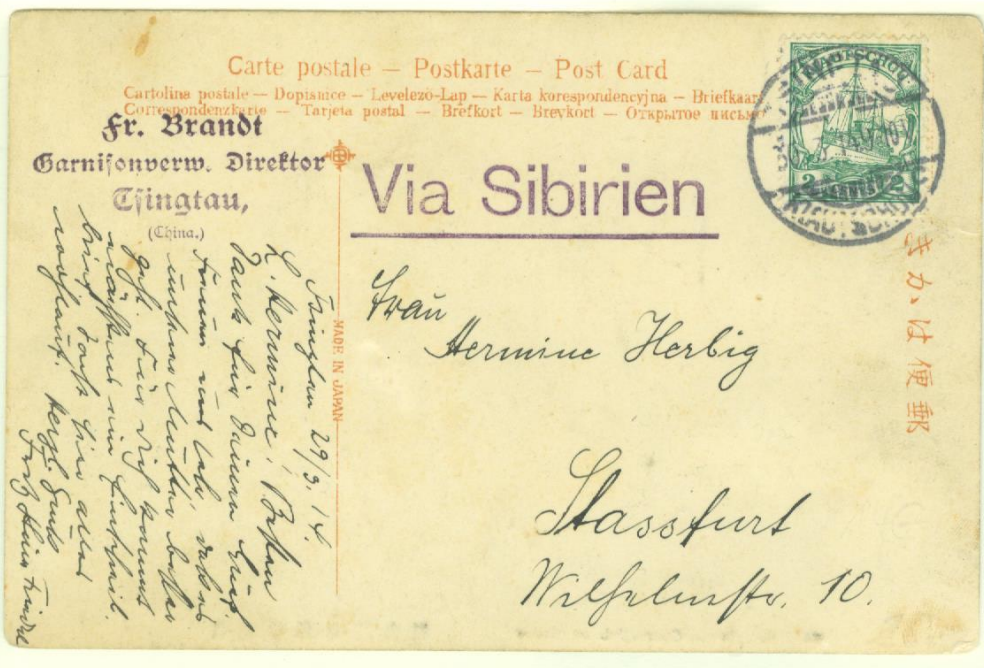 Carte postale — Postkarte — Post Card
Cartolina postale — Dopisnice — Levelezö-Lap — Karta korespondencyjna — Briefkaart
Correspondenzkarte — Tarjeta postal — Brefkort — Brevkort — Открытое письмо
Fr. Brandt
Garnisonverw. Direktor
Tsingtau,
(China.)
Via Sibirien
2 2
KIAUTSCHOU
郵便はかき
MADE IN JAPAN
Frau
Hermine Herbig
Stassfurt
Wilhelmstr. 10.
Tsingtau 29/3. 14.
L. Hermine! Besten
Dank für Deinen
daß es
Mutter besser
geht. Für Dich kommt
nächstens ein
brief. Sonst hier alles
wohlauf. Herzl. Gruß